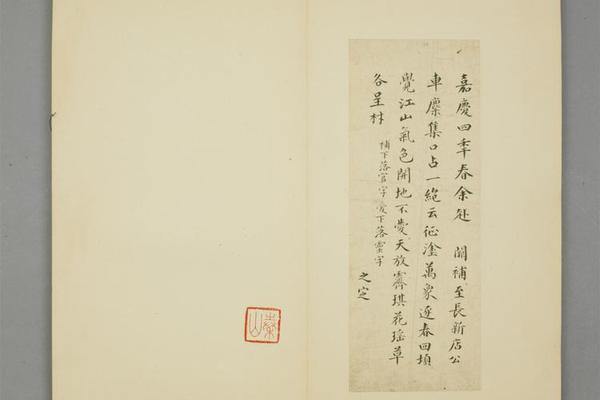 嘉慶四年春余赴 闕補至長新店公
車麇集口占一絶云征塗萬象逐春回頓
覺江山氣色開地不愛天放霽琪花瑤草
各呈材 補下落官字愛下落寶字
之定